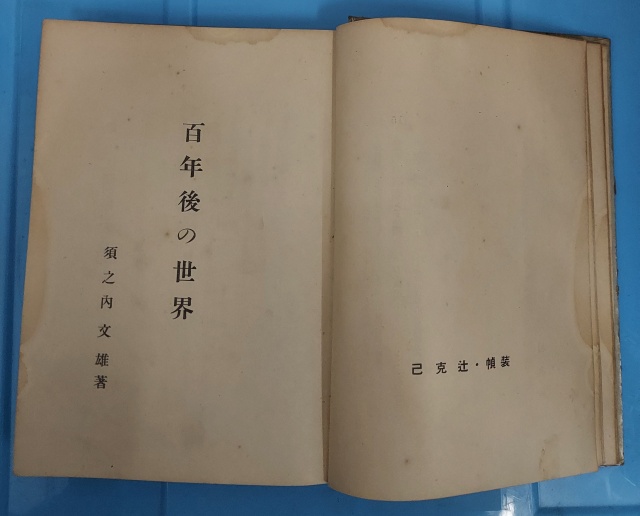 装幀・辻克己
百年後の世界
須之内文雄著